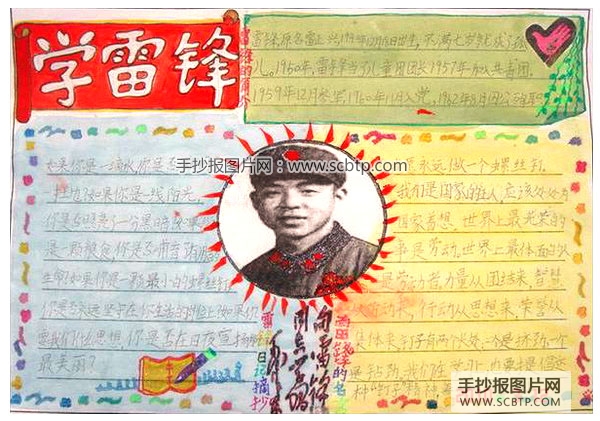 学雷锋
雷锋的简介
雷锋,原名雷正兴,1940年12月18日出生,不满七岁就成了孤
儿。1950年,雷锋当了儿童团团长1957年加入共青团,
1959年12月参军,1960年11月入党,1962年8月
手抄报图片网:
www.scbtp.com
如果你是一滴水,你是否
如果你是一线阳光,
你是否照亮了一分黑暗
是一颗粮食,你是否哺育
生命如果你是一颗最小的螺丝钉
你是否永远坚守在你生活的岗位上如果你
告诉我们什么思想,你是否在日夜宣扬
最美
永远做一个螺丝钉
我们是国家的主人,应该处处为
国家着想,世界上最光荣的
事是劳动,世界上最体面的人
是劳动者力量从团结来,智慧
从劳动来,行动从思想来,荣誉从
集体来钉子有两个长处,一个是挤劲,一个
是钻劲,我们在学习上,也要提倡
雷锋日记摘抄
向雷锋
同志学习
毛泽东
雷锋的名言
手抄报图片网
WWW.SCBTP.COM